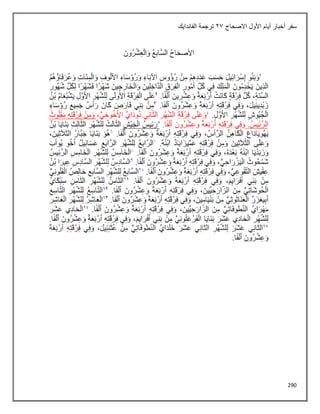 سفر أخبار أيام الأول الاصحاح ٢٧ ترجمة الفاندايك
الأصحَاحُ السَّابعُ وَالْعِشْرُونَ
١وَبَنُو إِسْرَائِيلَ حَسَبَ عَدَدِهِمْ مِنْ رُؤُوسِ الآبَاءِ وَرُؤَسَاءِ الأُلُوفِ وَالْمِئَاتِ وَعُرَفَاؤُهُمُ
الَّذِينَ يَخْدِمُونَ الْمَلِكَ فِي كُلِّ أُمُورِ الْفِرَقِ الدَّاخِلِينَ وَالْخَارِجِينَ شَهْرًا فَشَهْرًا لِكُلِّ شُهُورِ
السَّنَةِ، كُلُّ فِرْقَةٍ كَانَتْ أَرْبَعَةً وَعِشْرِينَ أَلْفًا. ٢عَلَى الْفِرْقَةِ الأُولَى لِلشَّهْرِ الأَوَّلِ يَشُبْعَامُ بْنُ
زَبْدِيئِيلَ، وَفِي فِرْقَتِهِ أَرْبَعَةٌ وَعِشْرُونَ أَلْفًا. ٣مِنْ بَنِي فَارَصَ كَانَ رَأْسُ جَمِيعِ رُؤَسَاءِ
الْجُيُوشِ لِلشَّهْرِ الأَوَّلِ. ٤وَعَلَى فِرْقَةِ الشَّهْرِ الثَّانِي دُودَايُ الأَخُوخِيُّ، وَمِنْ فِرْقَتِهِ مِقْلُوثُ
الرَّئِيسُ. وَفِي فِرْقَتِهِ أَرْبَعَةٌ وَعِشْرُونَ أَلْفًا. ٥رَئِيسُ الْجَيْشِ الثَّالِثُ لِلشَّهْرِ الثَّالِثِ بَنَايَا بْنُ
يَهُويَادَاعَ الْكَاهِنُ الرَّأْسُ، وَفِي فِرْقَتِهِ أَرْبَعَةٌ وَعِشْرُونَ أَلْفًا. ٦هُوَ بَنَايَا جَبَّارُ الثَّلاَثِينَ،
وَعَلَى الثَّلاَثِينَ وَمِنْ فِرْقَتِهِ عَمِّيزَابَادُ ابْنُهُ. ٧الرَّابعُ لِلشَّهْرِ الرَّابعِ عَسَائِيلُ أَخُو يُوآبَ
وَزَبَدْيَا ابْنُهُ بَعْدَهُ، وَفِي فِرْقَتِهِ أَرْبَعَةٌ وَعِشْرُونَ أَلْفًا. ٨الْخَامِسُ لِلشَّهْرِ الْخَامِسِ الرَّئِيسُ
شَمْحُوثُ الْيَزْرَاحِيُّ، وَفِي فِرْقَتِهِ أَرْبَعَةٌ وَعِشْرُونَ أَلْفًا. ٩السَّادِسُ لِلشَّهْرِ السَّادِسِ عِيرَا بْنُ
عِقِّيشَ التَّقُوعِيُّ، وَفِي فِرْقَتِهِ أَرْبَعَةٌ وَعِشْرُونَ أَلْفًا. ١٠السَّابعُ لِلشَّهْرِ السَّابعِ حَالِصُ الْفَلُونِيُّ
مِنْ بَنِي أَفْرَايِمَ، وَفِي فِرْقَتِهِ أَرْبَعَةٌ وَعِشْرُونَ أَلْفًا. ١١الثَّامِنُ لِلشَّهْرِ الثَّامِنِ سِبْكَايُ
الْحُوشَاتِيُّ مِنَ الزَّارَحِيِّينَ، وَفِي فِرْقَتِهِ أَرْبَعَةٌ وَعِشْرُونَ أَلْفًا. ١٢التَّاسِعُ لِلشَّهْرِ التَّاسِعِ
أَبِيعَزَرُ الْعَنَاثُوثِيُّ مِنْ بَنْيَامِينَ، وَفِي فِرْقَتِهِ أَرْبَعَةٌ وَعِشْرُونَ أَلْفًا. ١٣الْعَاشِرُ لِلشَّهْرِ الْعَاشِرِ
مَهْرَايُ النَّطُوفَاتِيُّ مِنَ الزَّارَحِيِّينَ، وَفِي فِرْقَتِهِ أَرْبَعَةٌ وَعِشْرُونَ أَلْفًا. ١٤الْحَادِي عَشَرَ
لِلشَّهْرِ الْحَادِي عَشَرَ بَنَايَا الْفَرْعَثُونِيُّ مِنْ بَنِي أَفْرَايِمَ، وَفِي فِرْقَتِهِ أَرْبَعَةٌ وَعِشْرُونَ أَلْفًا.
١٥الثَّانِي عَشَرَ لِلشَّهْرِ الثَّانِي عَشَرَ خَلْدَايُ النَّطُوفَاتِيُّ مِنْ عُثْنِيئِيلَ، وَفِي فِرْقَتِهِ أَرْبَعَةٌ
وَعِشْرُونَ أَلْفًا.
290